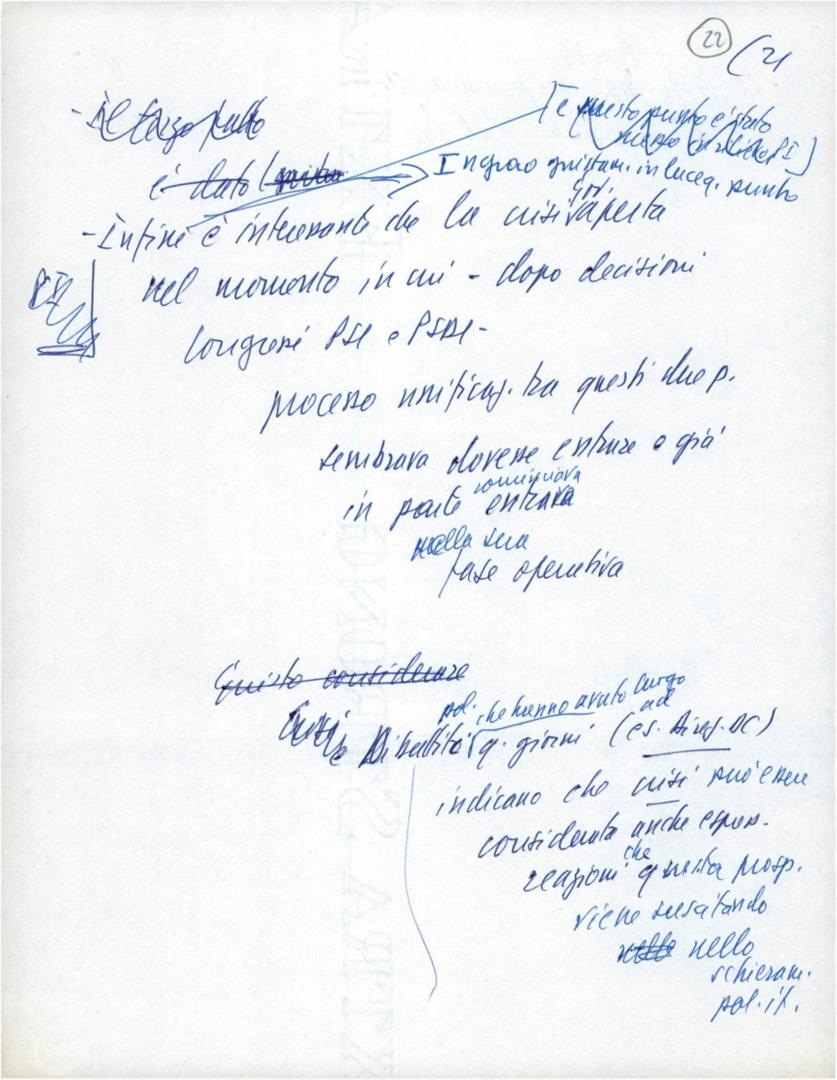 22 (21
- Il terzo punto
[e questo punto è stato
messo in rilievo PI]
è dato (
Ingrao giustam. in luce q. punto
- Infine è interessante che la crisi gov. aperta
nel momento in cui - dopo decisioni
Congressi PSI e PSDI -
processo unificaz. tra questi due p.
sembrava dovesse entrare e già
in parte cominciava entrava
nella sua
fase operativa
Questo considerare
Crisi e Dibattito pol. che hanno avuto luogo
q. giorni (es. ad Direz. DC)
indicano che crisi può essere
considerata anche espress.
reazioni che questa prosp.
viene suscitando
nelle nello
schieram.
pol. it.